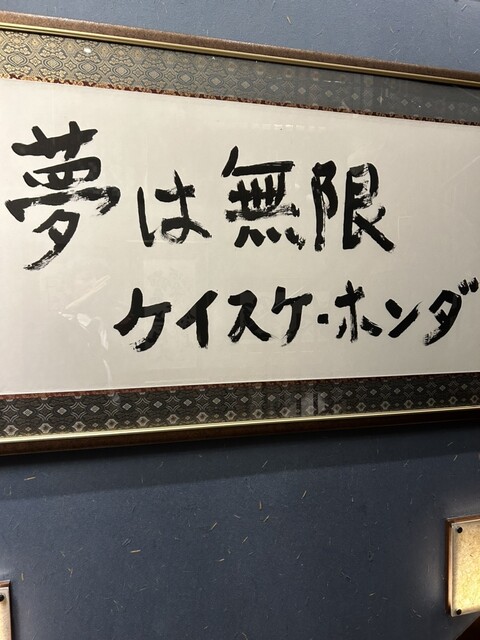 夢は無限
ケイスケ・ホンダ